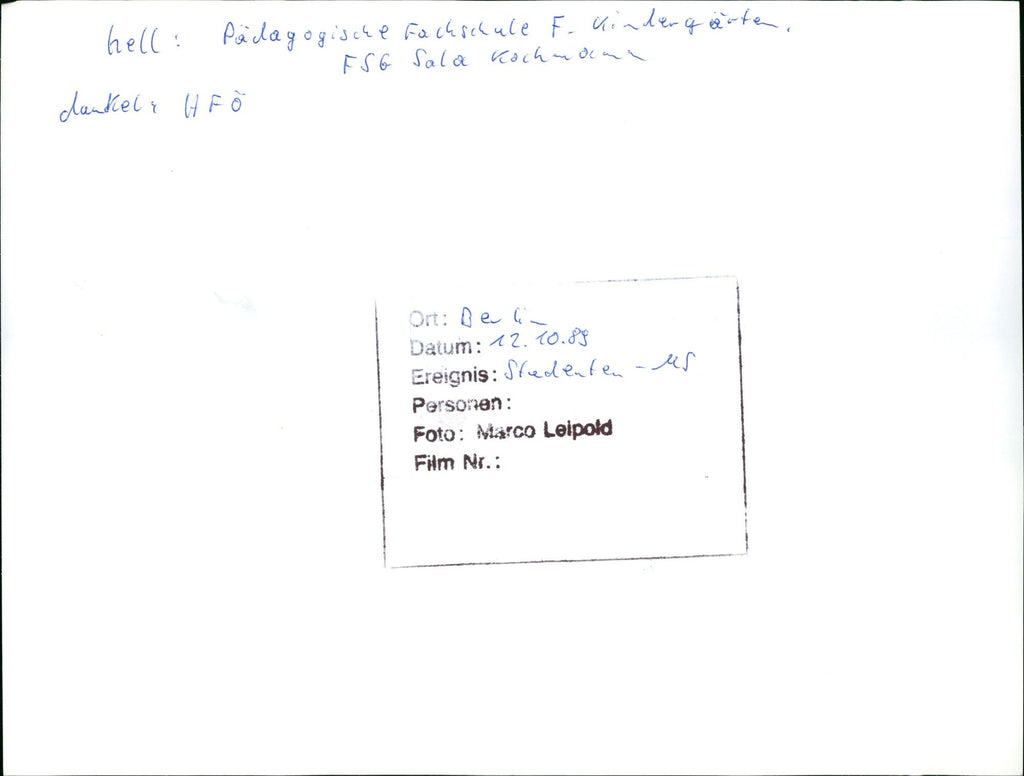 hell: Pädagogische Fachschule F. Kindergärten.
FSG Sala Kochmann
dunkel: HFÖ
Ort: Berlin
Datum: 12.10.89
Ereignis: Studenten-MS
Personen:
Foto: Marco Leipold
Film Nr.: